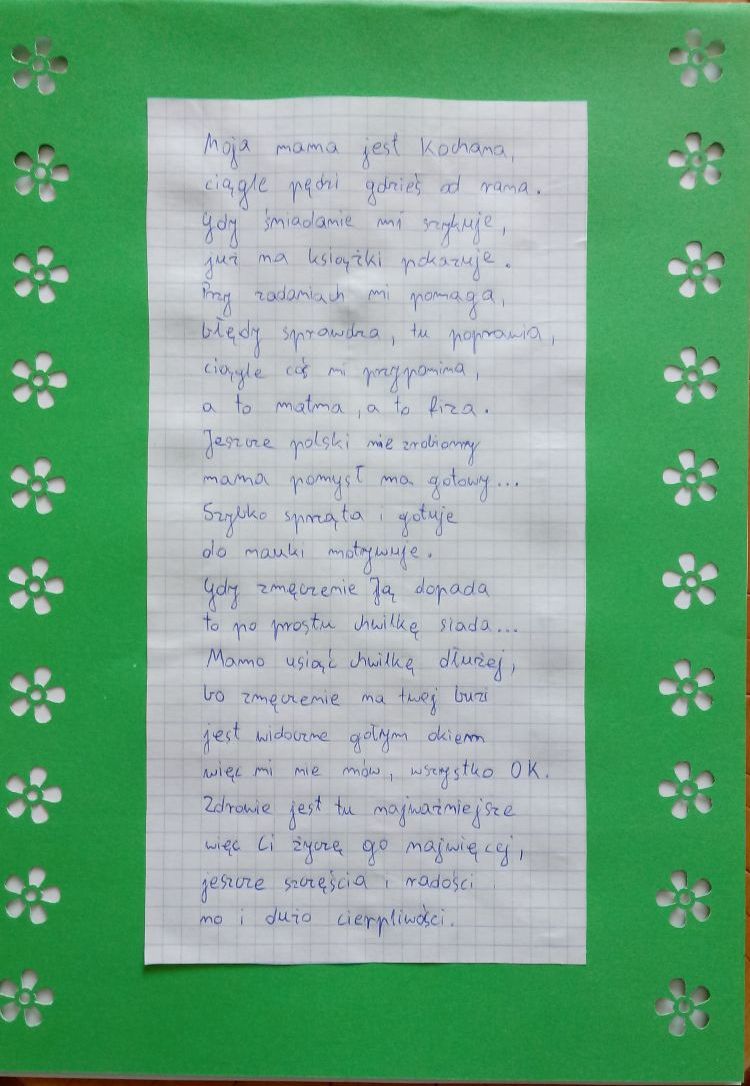 Moja mama jest kochana,
ciągle pędzi gdzieś od rana.
Gdy śniadanie mi szykuje,
już na książki pokazuje.
Przy zadaniach mi pomaga,
błędy sprawdza, tu poprawia,
ciągle coś mi przypomina,
a to matma, a to fiza.
Jeszcze polski nie zrobiony
mama pomysł ma gotowy...
Szybko sprząta i gotuje
do nauki motywuje.
Gdy zmęczenie Ją dopada
to po prostu chwilkę siada...
Mamo usiąć chwilkę dłużej,
bo zmęczenie na twej buzi
jest widoczne gołym okiem
więc mi nie mów, wszystko OK.
Zdrowie jest tu najważniejsze
więc Ci życzę go najwięcej,
jeszcze szczęścia i radości
no i dużo cierpliwości.